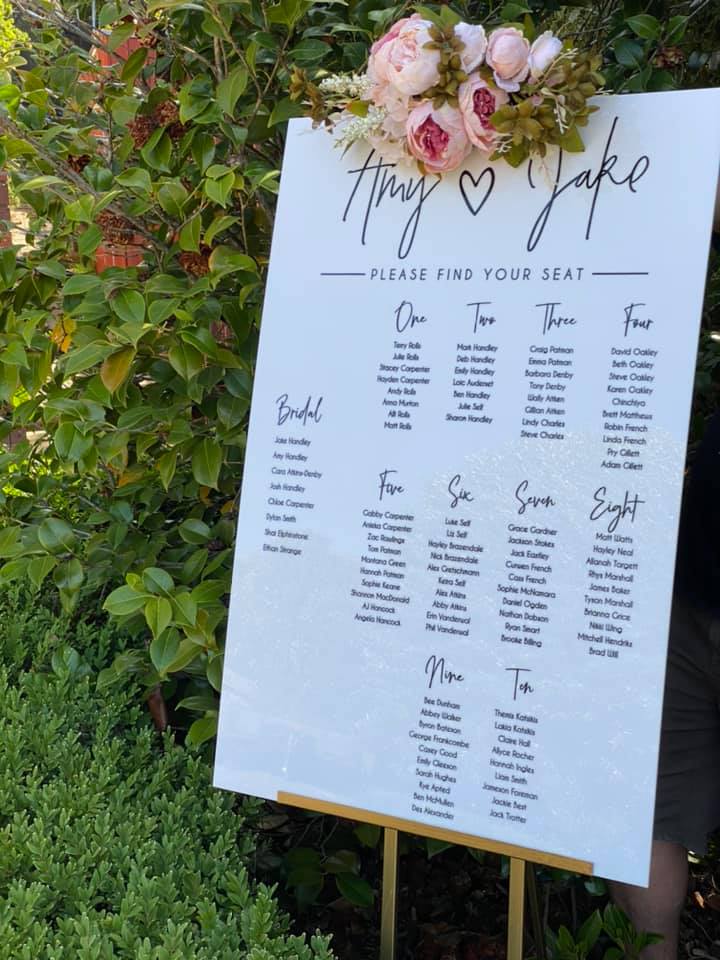 Amy ♡ Jake
PLEASE FIND YOUR SEAT
One
Terry Rolls
Julie Rolls
Stacey Carpenter
Hayden Carpenter
Andy Rolls
Anna Murton
Alli Rolls
Matt Rolls
Two
Mark Handley
Deb Handley
Emily Handley
Loic Audienet
Ben Handley
Julie Self
Sharon Handley
Three
Craig Patman
Emma Patman
Barbara Denby
Tony Denby
Wally Aitken
Gillian Aitken
Lindy Charles
Steve Charles
Four
David Oakley
Beth Oakley
Steve Oakley
Karen Oakley
Chinchiya
Brett Matthews
Robin French
Linda French
Pry Gillett
Adam Gillett
Bridal
Jake Handley
Amy Handley
Cara Atkins-Denby
Josh Handley
Chloe Carpenter
Dylan Smith
Shai Elphinstone
Ethan Strange
Five
Gabby Carpenter
Anieka Carpenter
Zac Rawlings
Tom Patman
Montana Green
Hannah Patman
Sophie Keane
Shannon MacDonald
AJ Hancock
Angela Hancock
Six
Luke Self
Liz Self
Hayley Brazendale
Nick Brazendale
Alex Gretschmann
Keira Self
Alex Atkins
Abby Atkins
Erin Vanderwal
Phil Vanderwal
Seven
Grace Gardner
Jackson Stokes
Jack Eastley
Curwen French
Cass French
Sophie McNamara
Daniel Ogden
Nathan Dobson
Ryan Smart
Brooke Billing
Eight
Matt Watts
Hayley Neal
Allanah Targett
Rhys Marshall
James Baker
Tyson Marshall
Brianna Grice
Nikki Wing
Mitchell Hendriks
Brad Will
Nine
Bee Dunham
Abbey Walker
Byron Batson
George Frankcombe
Casey Good
Emily Gleeson
Sarah Hughes
Kye Apted
Ben McMullen
Des Alexander
Ten
Themis Katsikis
Lakia Katsikis
Claire Hall
Allyce Rocher
Hannah Ingles
Liam Smith
Jameson Foreman
Jackie Best
Jack Trotter